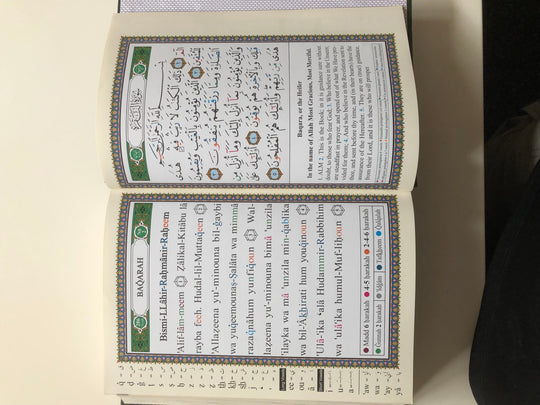 سورة البقرة
بسم الله الرحمن الرحيم
الٓمٓ ذَٰلِكَ الْكِتَابُ لَا رَيْبَ فِيهِ هُدًى
لِّلْمُتَّقِينَ الَّذِينَ يُؤْمِنُونَ بِالْغَيْبِ وَيُقِيمُونَ
الصَّلَاةَ وَمِمَّا رَزَقْنَاهُمْ يُنفِقُونَ
وَالَّذِينَ يُؤْمِنُونَ بِمَا أُنزِلَ إِلَيْكَ وَمَا أُنزِلَ مِن
قَبْلِكَ وَبِالْآخِرَةِ هُمْ يُوقِنُونَ أُولَٰئِكَ عَلَىٰ
هُدًى مِّن رَّبِّهِمْ وَأُولَٰئِكَ هُمُ الْمُفْلِحُونَ
Baqara, or the Heifer
In the name of Allah, Most Gracious, Most Merciful.
1. ALM 2. This is the Book; in it is guidance sure, without
doubt, to those who fear God; 3. Who believe in the Unseen,
are steadfast in prayer, and spend out of what We have pro-
vided for them; 4. And who believe in the Revelation sent to
thee, and sent before thy time, and (in their hearts) have the
assurance of the Hereafter. 5. They are on (true) guidance,
from their Lord, and it is these who will prosper
BAQARAH
Bismi-LLāhir-Raḥmānir-Raḥeem
'Alif-lām-meem Ẓālikal-Kitābu lā
rayba feeh. Hudal-lil-Muttaqeen
'Allaẓeena yu'-minouna bil-ğaybi
wa yuqeemounaṣ-Ṣalāta wa mimmā
razaqnāhum yunfiqoun Wal-
laẓeena yu'-minouna bimā 'unzila
'ilayka wa mā 'unzila min-qablika
wa bil-'Āḵhirati hum youqinoun
'Ulā-'ika ʻalā Hudammir-Rabbihim
wa 'ulā'ika humul-Muf-liḥoun
Madd 6 ḥarakah 4-5 ḥarakah 2-4-6 ḥarakah
Ğunnah 2 ḥarakah 'Idğām Tafkheem Qalqalah